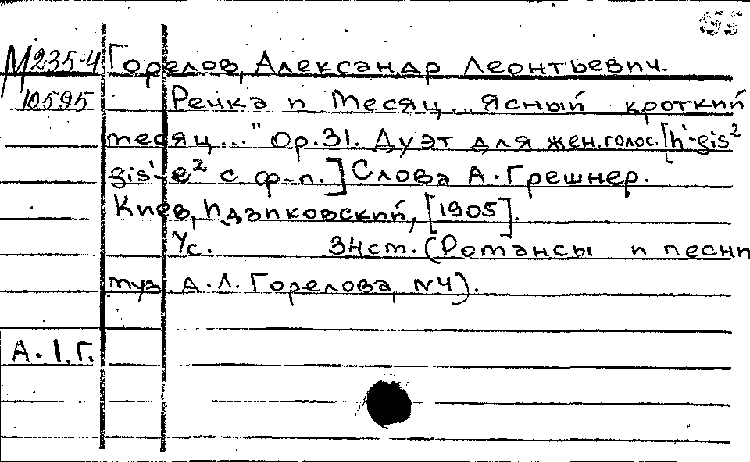 М235-4 Горелов, Александр Леонтьевич.
10595 Речка и месяц. „Ясный кроткий
месяц..." Ор.31. Дуэт для жен.голос. [h'-gis²
gis'-e² с ф-п.] Слова А.Грешнер.
Киев, Идзиковский, [1905].
4с. 34ст. (Романсы и песни
муз. А.Л. Горелова, №4).
А.I.Г.